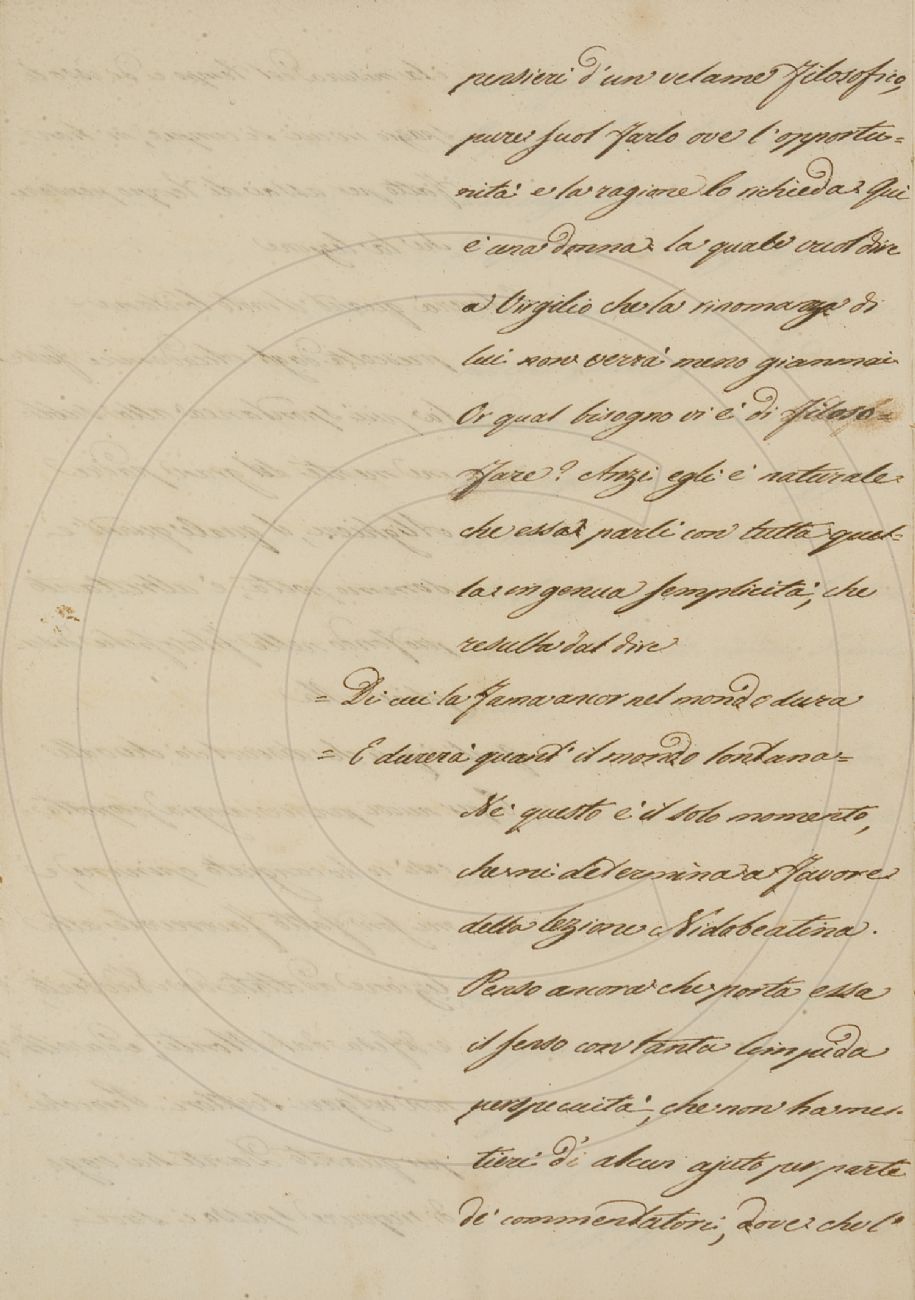 pensieri d'un velame filosofico,
pure suol farlo ove l'opportu=
nità e la ragione lo richieda. Qui
è una donna la quale vuol dire
a Virgilio che la rinomanza di
lui non verrà meno giammai
Or qual bisogno vi è di filoso=
fare? Anzi egli è naturale
che essa parli con tutta quel=
la ingenua semplicità, che
resulta dal dire
= Di cui la fama ancor nel mondo dura
= E durerà quant' il mondo lontana=
Nè questo è il solo momento,
che mi determina a favore
della lezione Nidobeatina.
Penso ancora che porta essa
il senso con tanta limpida
perspecuità, che non ha mes=
tieri di alcun ajuto per parte
de' commentatori, dove che l'